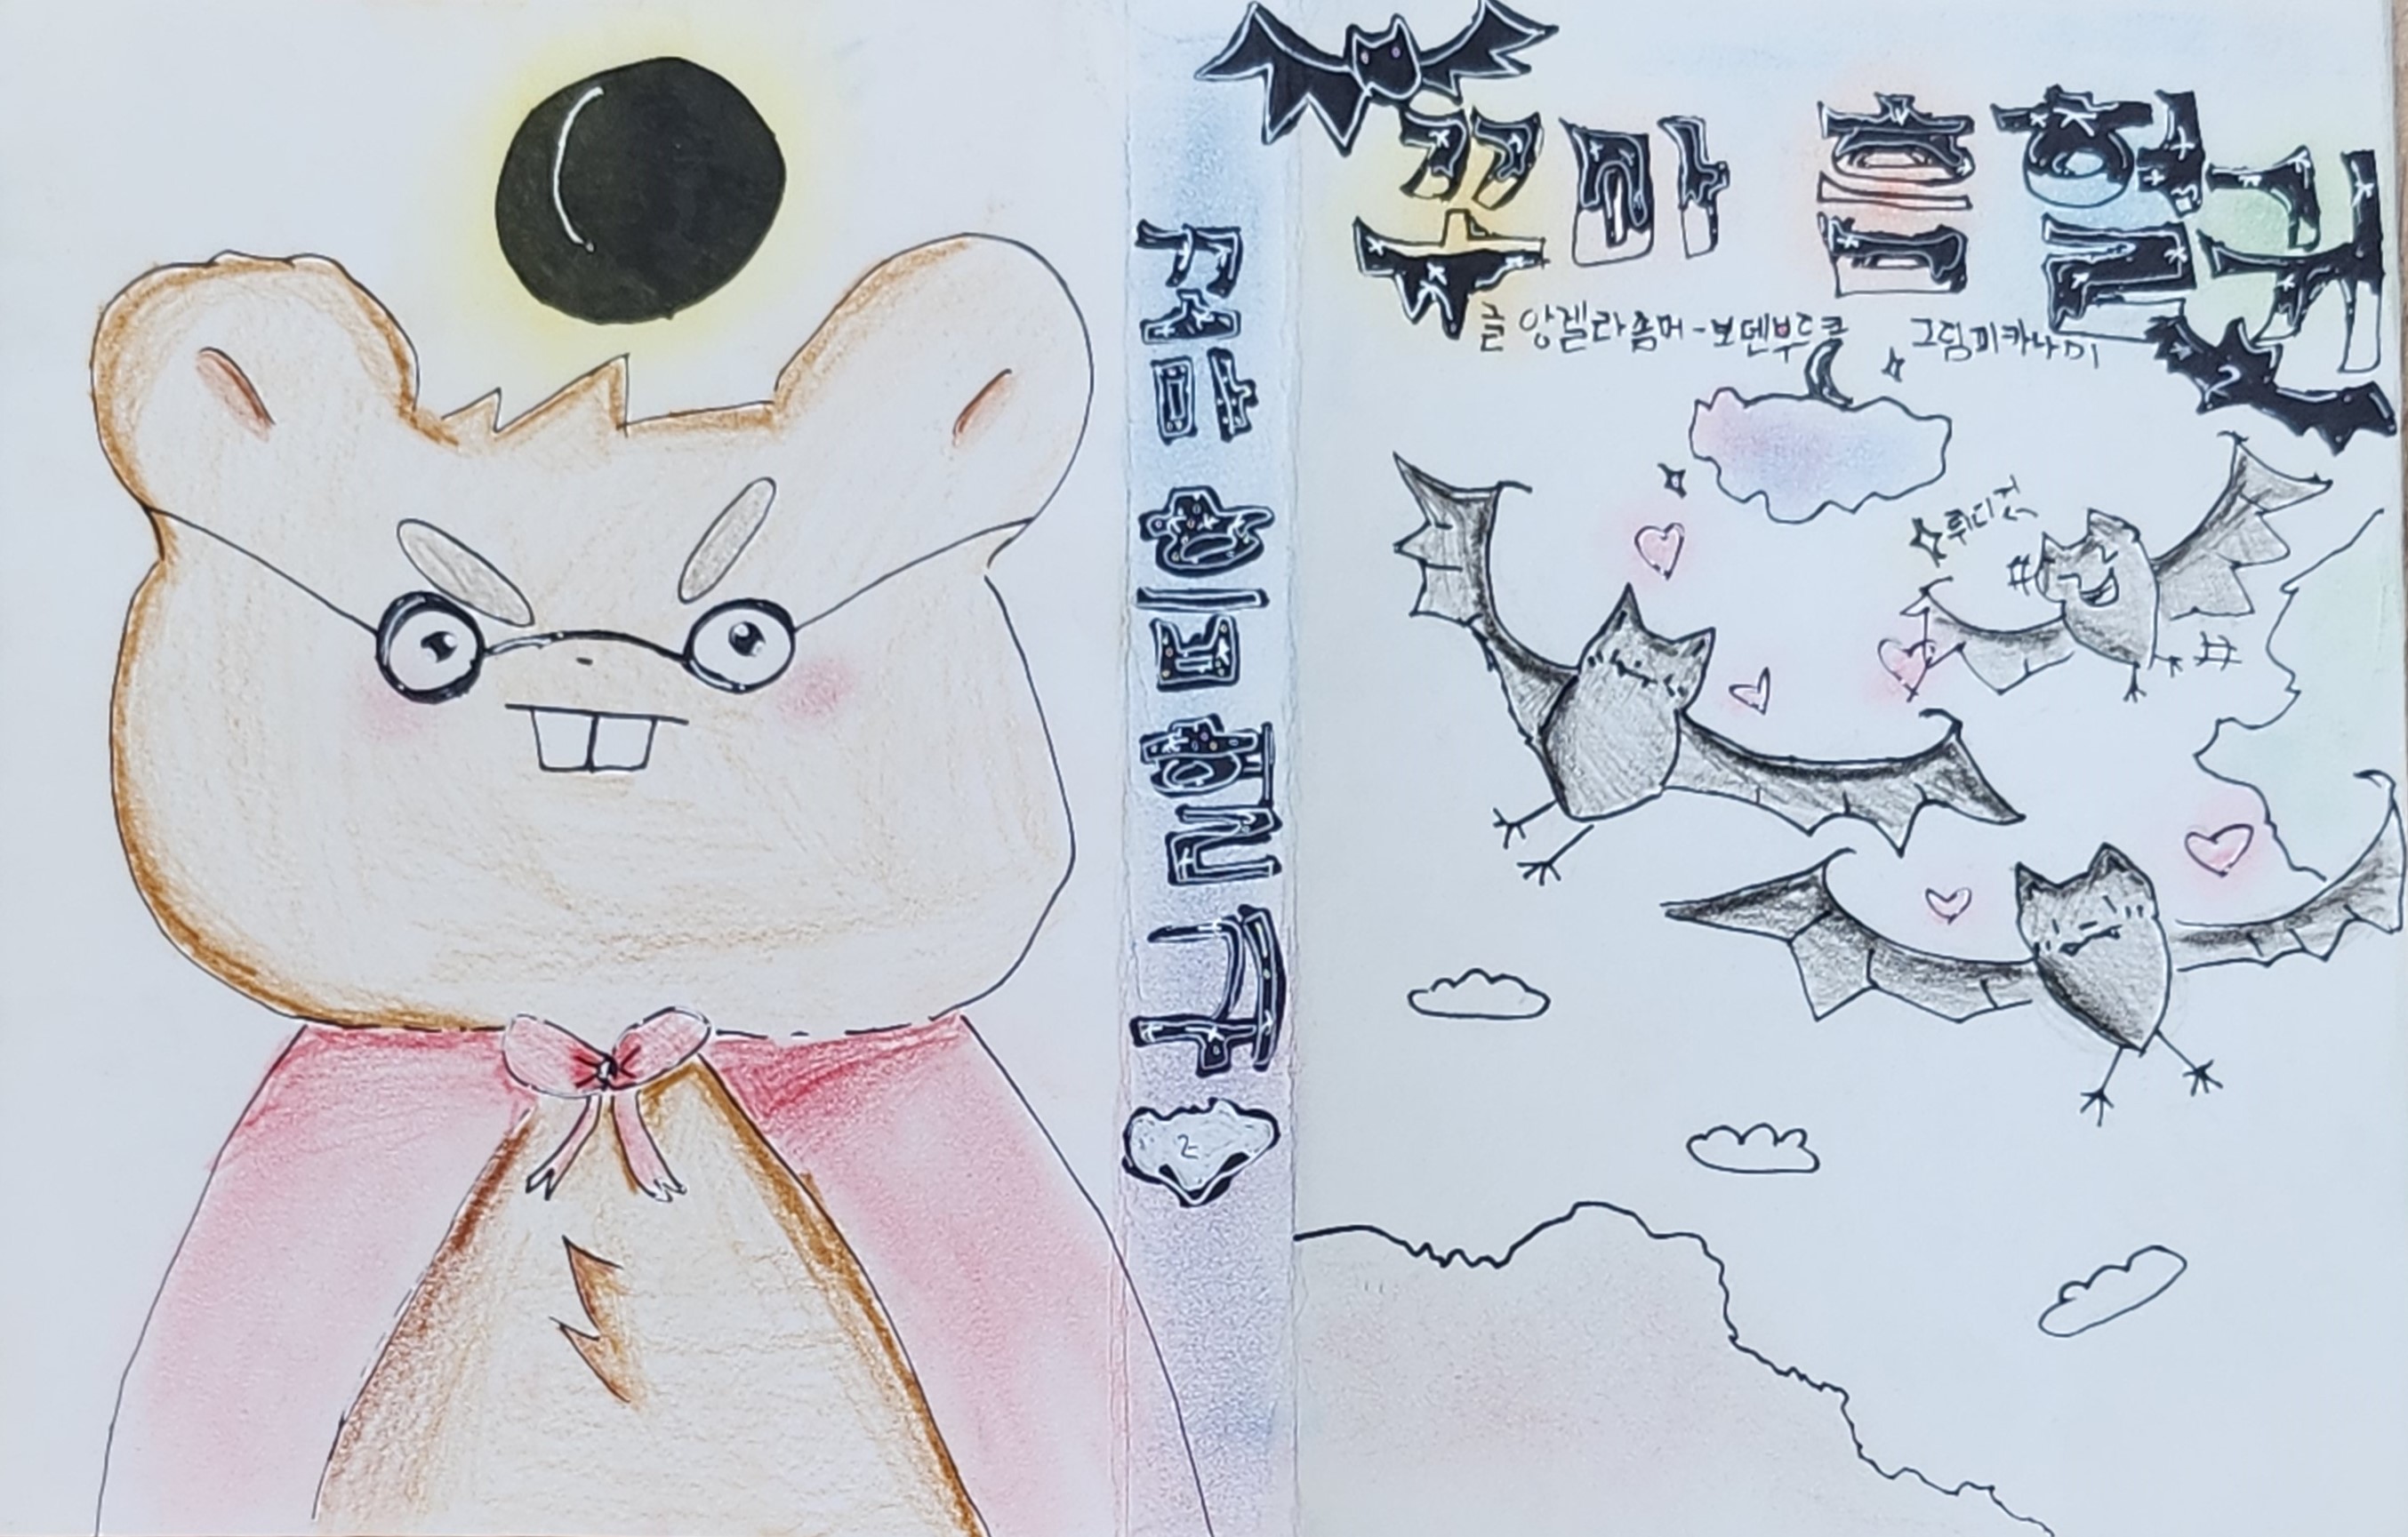 꼬마 흡혈귀
2
꼬마 흡혈귀
글 앙겔라좀머-보덴부르크 그림미카나미
2
뤼디거